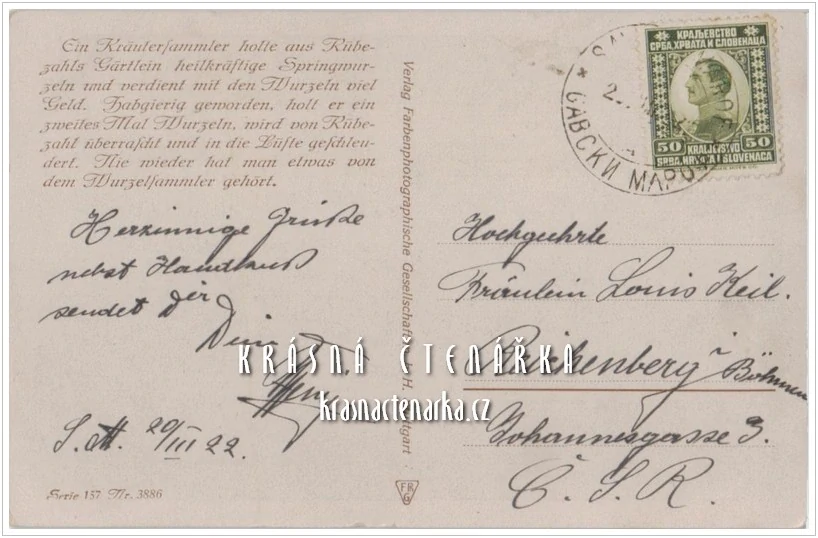 Ein Kräutersammler holte aus Rübe-
zahls Gärtlein heilkräftige Springwur-
zeln und verdient mit den Wurzeln viel
Geld. Habgierig geworden, holt er ein
zweites Mal Wurzeln, wird von Rübe-
zahl überrascht und in die Lüfte geschleu-
dert. Nie wieder hat man etwas von
dem Wurzelsammler gehört.
Herzinnige Grüße
nebst Handkuß
sendet Dir
Dein
S. M. 20/III 22.
Serie 157 Nr. 3886
Verlag Farbenphotographische Gesellschaft
FRG
КРАЉЕВСТВО
СРБА, ХРВАТА И СЛОВЕНАЦА
50 KRALJEVSTVO 50
SRBA, HRVATA I SLOVENACA
САВСКИ МАРОФ
Hochgeehrte
Fräulein Louis Keil.
Reichenberg i
Böhmen
Johannesgasse 3.
Č. S. R.
KRÁSNÁ ČTENÁŘKA
krasnactenarka.cz